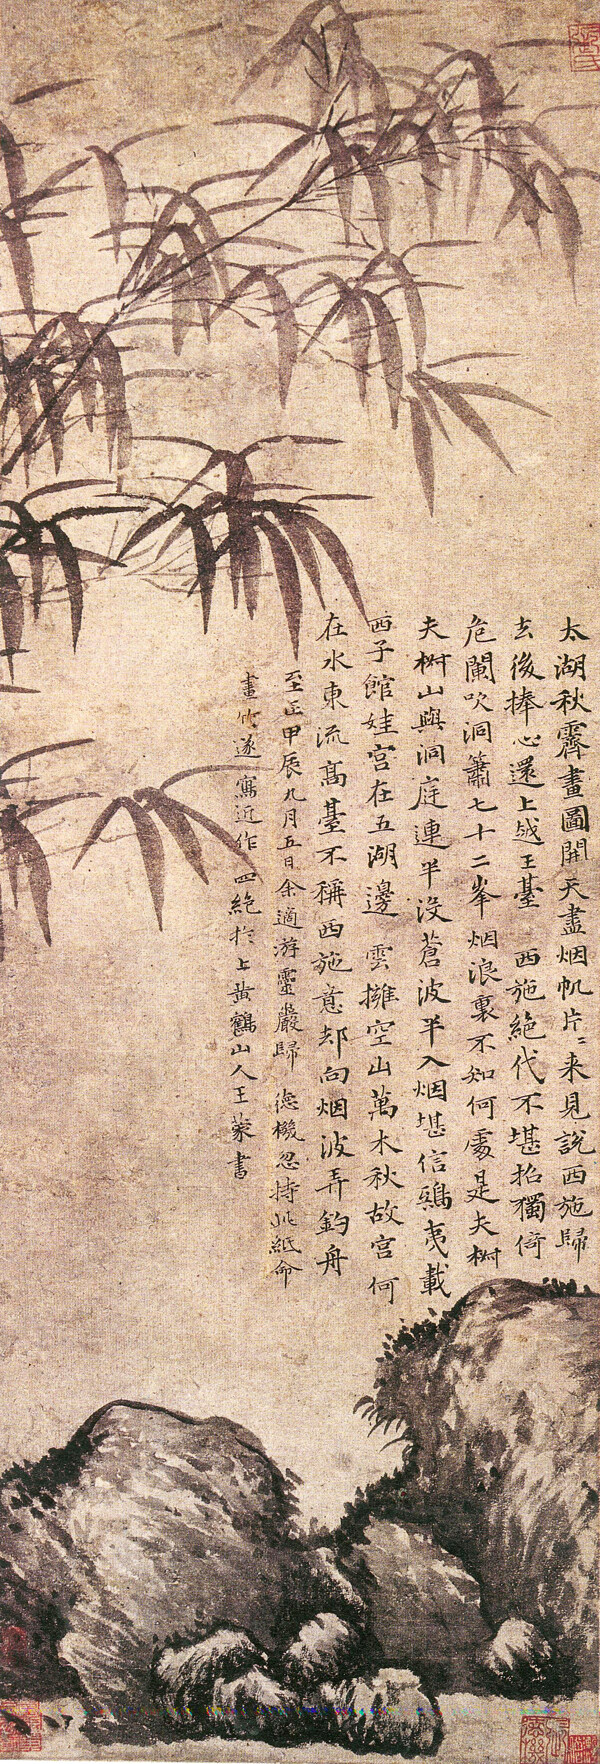 太湖秋霽畫圖開天盡烟帆片〻来見說西施歸
去後捧心還上越王臺 西施絕代不堪招獨倚
危闌吹洞簫七十二峯烟浪裏不知何處是夫椒
夫椒山與洞庭連半沒蒼波半入烟堪信鴟夷載
西子館娃宮在五湖邊 雲擁空山萬木秋故宮何
在水東流高臺不稱西施意却向烟波弄釣舟
至正甲辰九月五日余適游靈巖歸 德機忽持此紙命
畫竹遂寫近作四絕扵上黃鶴山人王蒙書